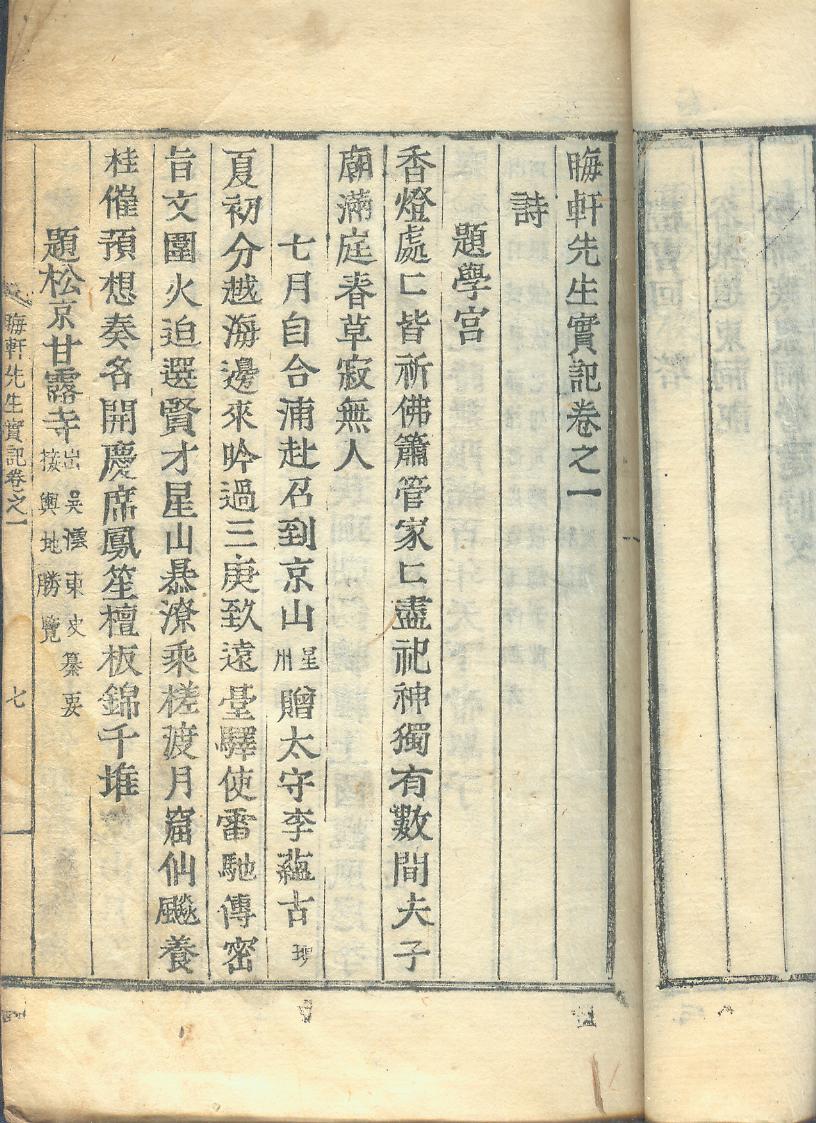 晦軒先生實記卷之一
詩
題學宮
香燈處〻皆祈佛簫管家〻盡祀神獨有數間夫子
廟滿庭春草寂無人
七月自合浦赴召到京山星州贈太守李蘊古
夏初分越海邊來吟過三庚致遠臺驛使雷馳傳密
旨文圍火迫選賢才星山暴潦乘槎渡月窟仙飈養
桂催預想奏名開慶席鳳笙檀板錦千堆
題松京甘露寺出吳澐東史纂要
按輿地勝覽
晦軒先生實記卷之一 七